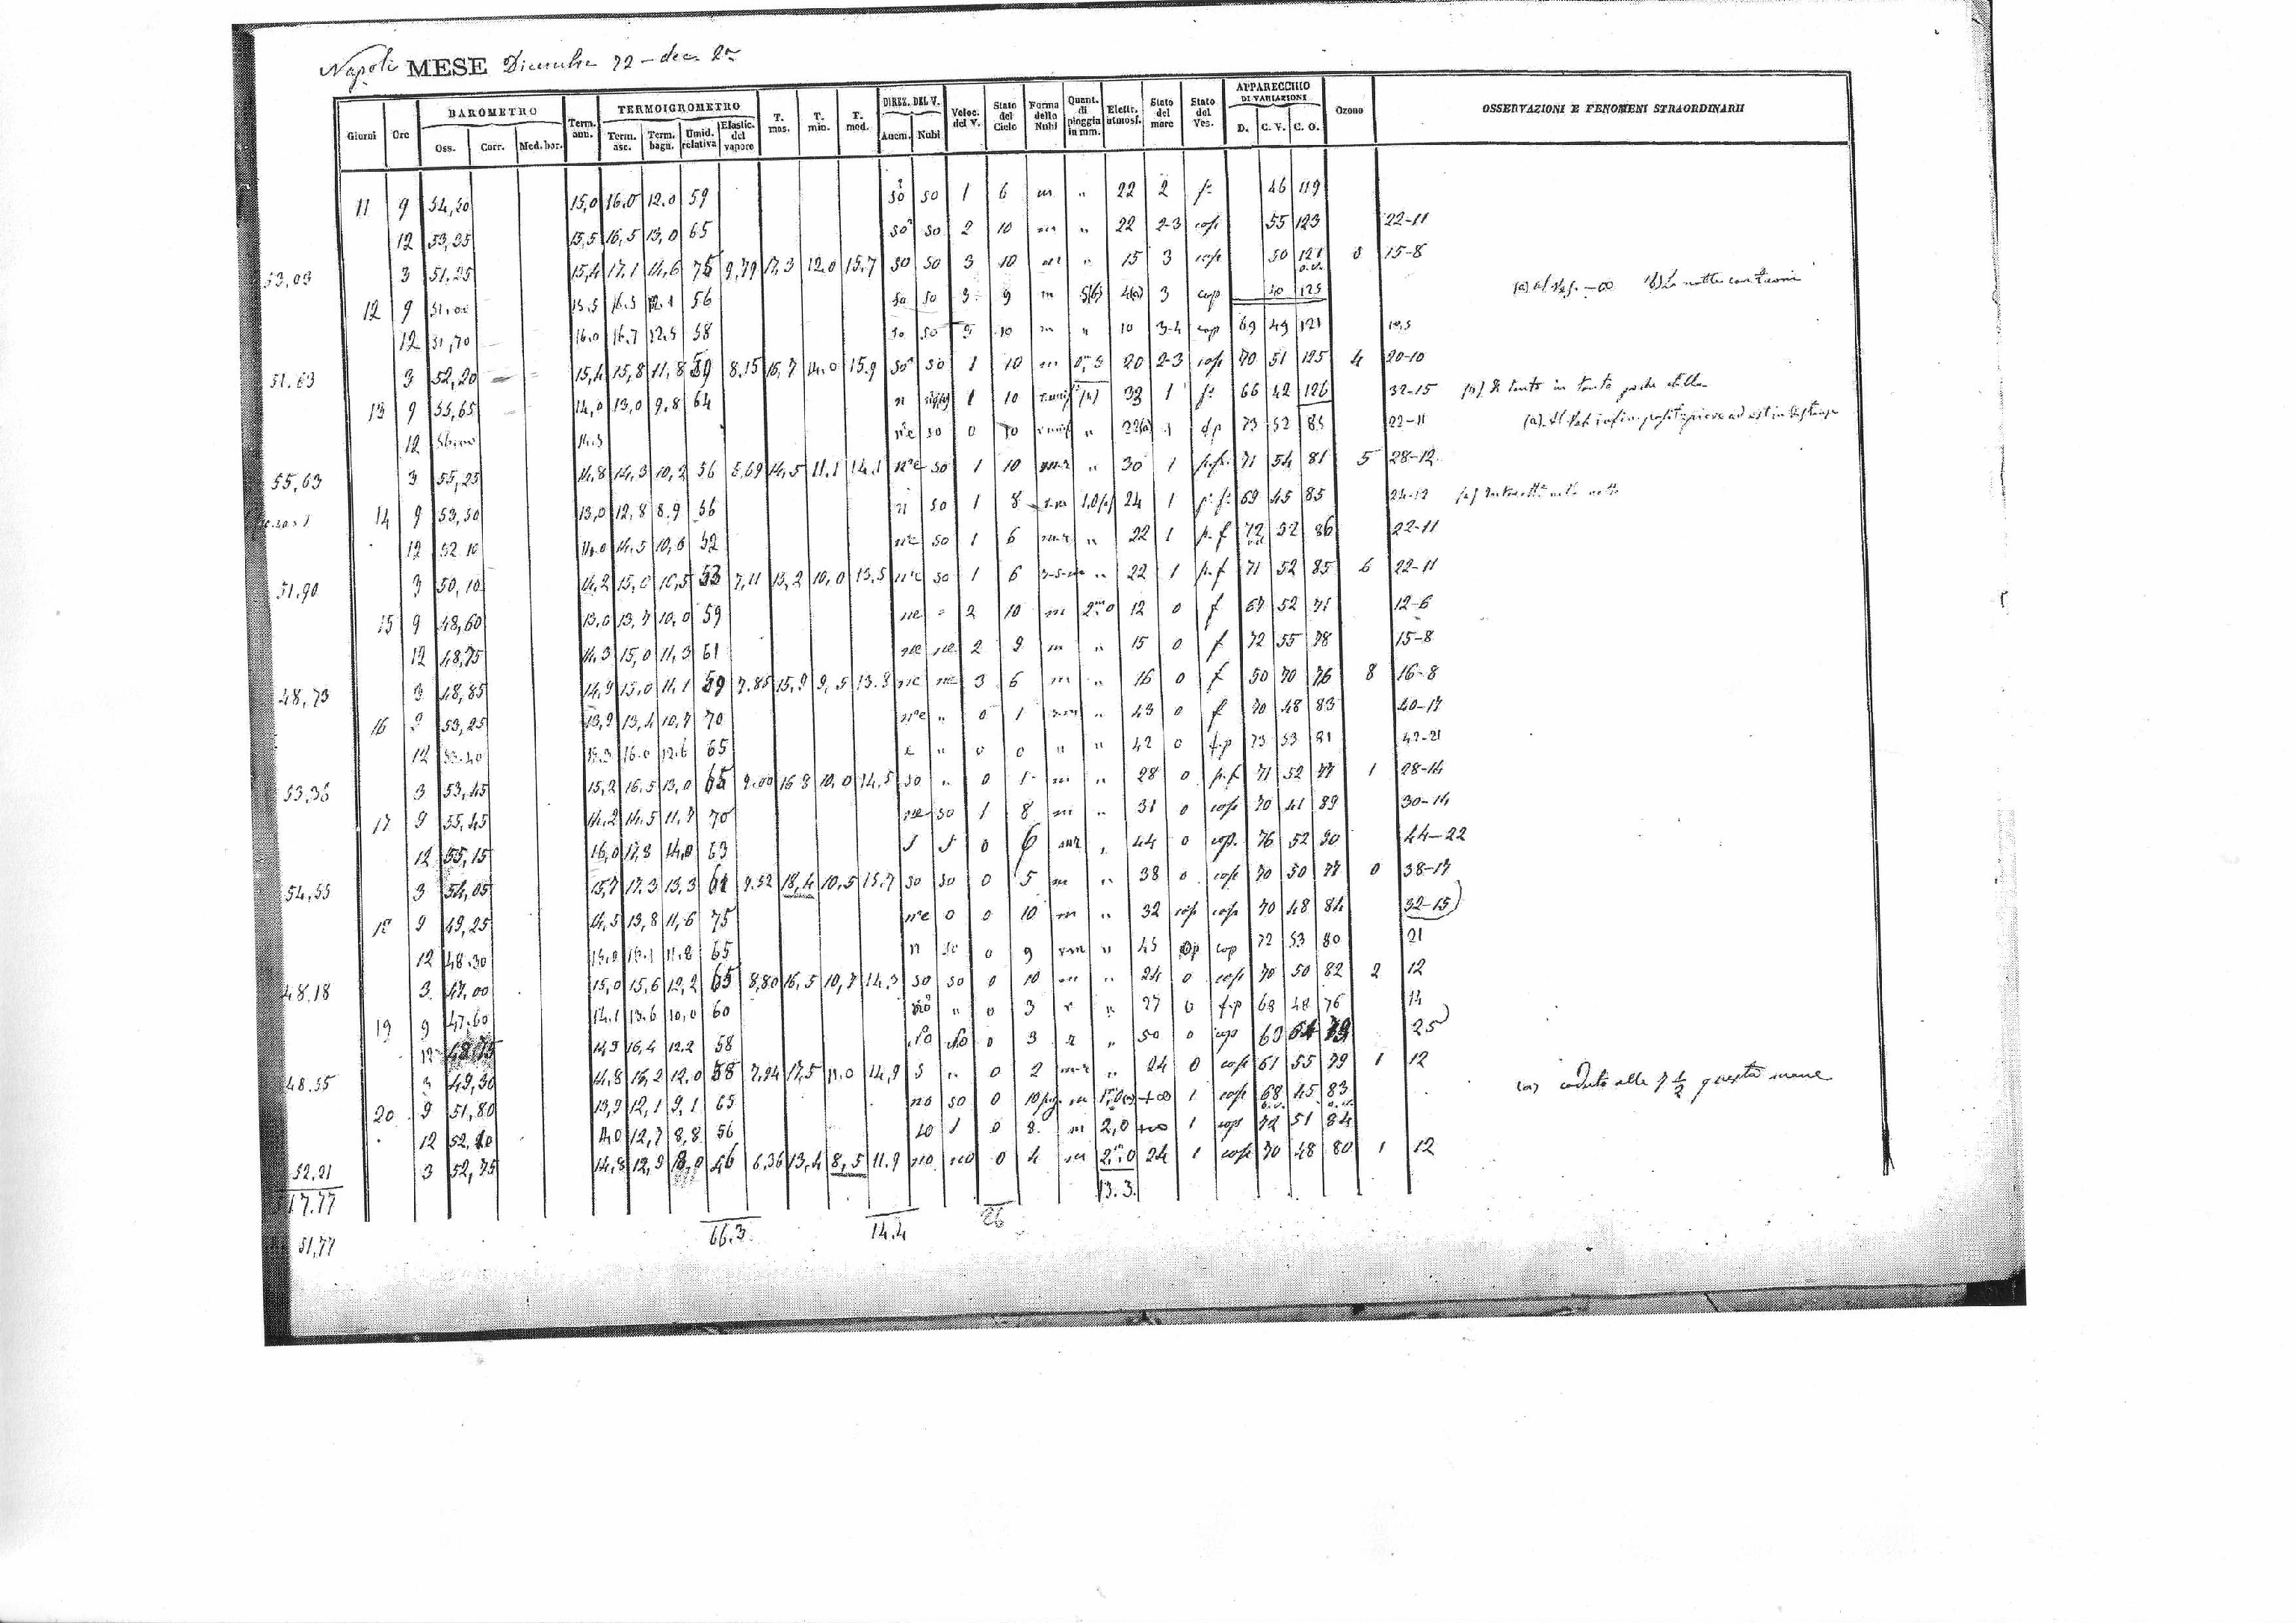 Napoli MESE Dicembre 72 – dec. 2a
Giorni Ore BAROMETRO Term. ann. TERMOIGROMETRO T. mas. T. min. T. med. DIREZ. DEL V. Veloc. del V. Stato del Cielo Forma delle Nubi Quant. di pioggia in mm. Elettr. atmosf. Stato del mare Stato del Ves. APPARECCHIO DI VARIAZIONI Ozono OSSERVAZIONI E FENOMENI STRAORDINARII
Oss. Corr. Med. bar. Term. asc. Term. bagn. Umid. relativa Elastic. del vapore Anem. Nubi D. C. V. C. O.
11 9 54,20 15,0 16.0 12.0 59 so so 1 6 m " 22 2 f. 46 119
12 53,35 15,5 16,5 13,0 65 so so 2 10 m " 22 2-3 cop 55 123 22-11
53,03 3 51,25 15,4 17.1 14,6 75 9,79 17,3 12.0 15.7 so so 3 10 m " 15 3 cop 50 121 0 15-8
12 9 51.00 15.5 16.5 56 so so 3 9 m 5(b) 4(a) 3 cop 50 125 (a) –∞ (b) La notte con tuoni
12 51,70 16.0 16.7 12.5 58 so so 5 10 m " 10 3-4 cop 69 49 121 10,5
51.63 3 52,20 15,4 15,8 11,8 59 8.15 16,7 14.0 15.9 so so 1 10 m 20 2-3 cop 70 51 125 4 20-10
13 9 55,65 14,0 13,0 9.8 64 n 1 10 33 1 f. 66 42 126 32-15 di tanto in tanto poche stille
12 14.5 ne so 0 10 " 22(a) 1 f.p 73 52 85 22-11
55,63 3 55,25 14,8 14,3 10,2 56 14,5 11.1 14.1 ne so 1 10 " 30 1 p.f. 71 54 81 5 28-12
14 9 53,50 13,0 12,8 8.9 56 n so 1 8 1.0(a) 24 1 69 45 85 24-12
12 52 10 14.0 14.5 10,6 52 ne so 1 6 " 22 1 p.f 72 52 86 22-11
51.90 3 50,10 14,2 15,0 10,5 53 7,11 15,2 10,0 13,5 ne so 1 6 " 22 1 p.f 71 52 85 6 22-11
15 9 48,60 13,0 13,7 10,0 59 ne - 2 10 m 12 0 f 67 52 71 12-6
12 48,75 14.3 15,0 11,3 61 ne ne 2 9 m " 15 0 f 72 55 78 15-8
48,73 3 48,85 14,9 15.0 11,1 59 7.85 15,9 9,5 13.9 ne ne 3 6 m " 16 0 f 50 70 76 8 16-8
16 9 53,25 13,9 13,4 10,7 70 ne " 0 1 " 43 0 f 70 48 83 40-17
12 53.40 15.3 16.0 12.6 65 e " 0 0 " " 42 0 f.p 73 53 81 42-21
53,36 3 53,45 15,2 16,5 13,0 65 9.00 10,0 14,5 so " 0 1 m " 28 0 p.f 71 52 77 1 28-14
17 9 55.45 14.2 14.5 11,7 70 ne so 1 8 m " 31 0 cop 70 41 89 30-14
12 55,15 16,0 17,8 14,0 63 s s 0 6 " 44 0 cop. 76 52 90 44-22
54,55 3 54,05 15,7 17,3 13,3 61 9.52 18,4 10,5 15.7 so so 0 5 m " 38 0 cop 70 50 77 0 38-17
18 9 49,25 14,5 13,8 11,6 75 ne 0 0 10 m " 32 cop cop 70 48 84 32-15)
12 48.30 11.8 65 n so 0 9 " 45 cop 72 53 80 21
48.18 3 47,00 15,0 15,6 12,2 65 8,80 16,5 10,7 14,3 so so 0 10 m " 24 0 cop 70 50 82 2 12
19 9 47.60 14.1 13.6 10,0 60 no " 0 3 r " 27 0 f.p 68 48 76 14
12 14,9 16,4 12.2 58 so so 0 3 r " 50 0 cop 63 25)
48.55 3 49,30 14,8 16,2 12,0 58 7,94 17,5 11.0 14,9 s " 0 2 m-r " 24 0 cop 61 55 79 1 12
20 9 51,80 13,9 12,1 9,1 65 no so 0 10 m +∞ 1 cop 68 45 83 (a) caduta alle 7 1/2 questa mane
12 52.20 14,0 12,7 8,8 56 so s 0 8. m 2,0 +∞ 1 cop 72 51 84
52.21 3 52,75 14,8 12,9 46 6,36 13,4 8,5 11.9 no no 0 4 m 24 1 cop 70 48 80 1 12
17.77 13.3.
66.3 14.4 26
51,77